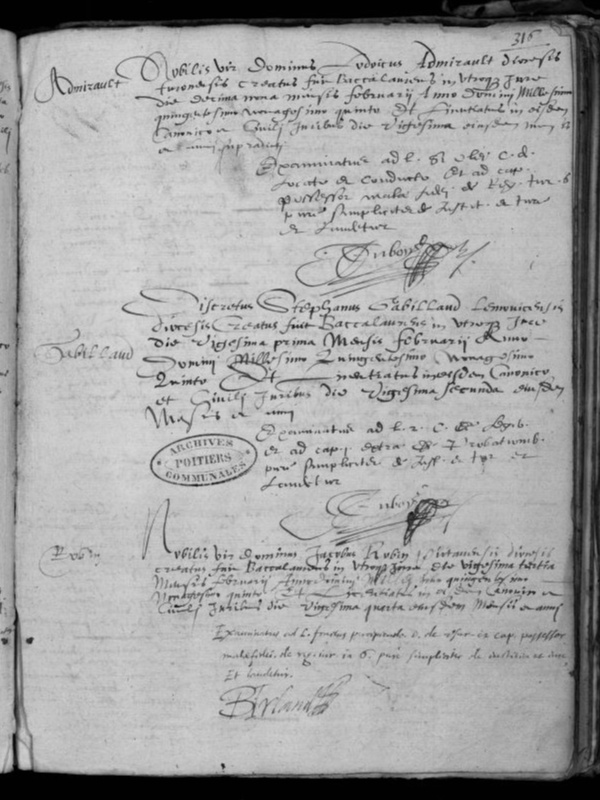 316
Admirault
Nobilis vir Dominus Lodoicus Admirault diocesis
turonensis creatus fuit Baccalaureus in utroq Jure
die decima nona mensis februarii Anno Domini Millesimo
quingentesimo nonagesimo quinto Et licentiatus in eisdem
Canonico et Civili Juribus die vigesima eiusdem mensis
et anni
Examinatus ad l. si C. de
Locato et Conducto Et ad cap.
possessor malae fidei de Reg. iur. 6
pure simpliciter de Justit. et iure
et laudetur
Duboys
Gabilland
Discretus Stephanus Gabilland Lemovicensis
diocesis Creatus fuit Baccalaureus in utroq Jure
die vigesima prima Mensis februarii Anno
Domini Millesimo Quingentesimo Nonagesimo
Quinto Et Licentiatus in eisdem Canonico
et Civili Juribus die vigesima secunda eiusdem
Mensis et anni
Examinatus ad l. 2. C. de
et ad cap. 1 extra de Probationib.
pure simpliciter de Just. et iur et
Laudetur
ARCHIVES
POITIERS
COMMUNALES
Duboys
Robin
Nobilis vir dominus Jacobus Robin pictaviensis diocesis
creatus fuit Baccalaureus in utroq Jure die vigesima tertia
Mensis februarii Anno Domini quingentesimo
Nonagesimo quinto Et Licentiatus in eisdem Canonico et
Civili Juribus die vigesima quarta eiusdem Mensis et anni
Examinatus ad l. C. de et cap. possessor
malae fidei de reg. iur. in 6. pure simpliciter de iustitia et iure
Et laudetur.
Irland